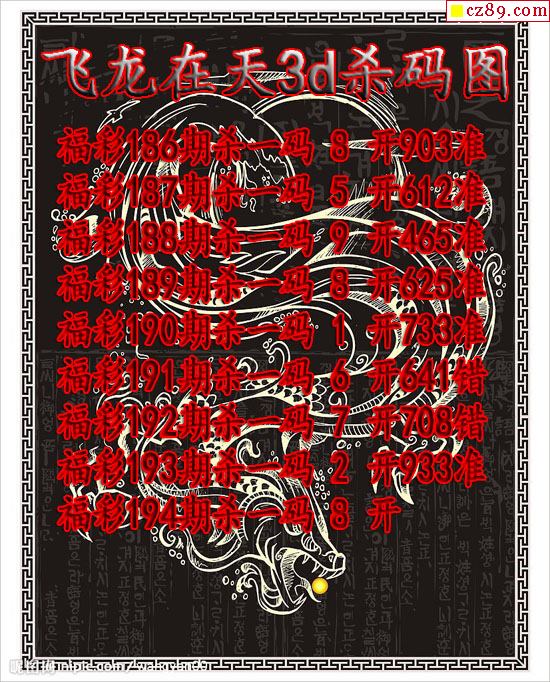 cz89.com
飞龙在天3d杀码图
福彩186期杀一码 8 开903准
福彩187期杀一码 5 开612准
福彩188期杀一码 9 开465准
福彩189期杀一码 8 开625准
福彩190期杀一码 1 开733准
福彩191期杀一码 6 开641错
福彩192期杀一码 7 开708错
福彩193期杀一码 2 开933准
福彩194期杀一码 8 开